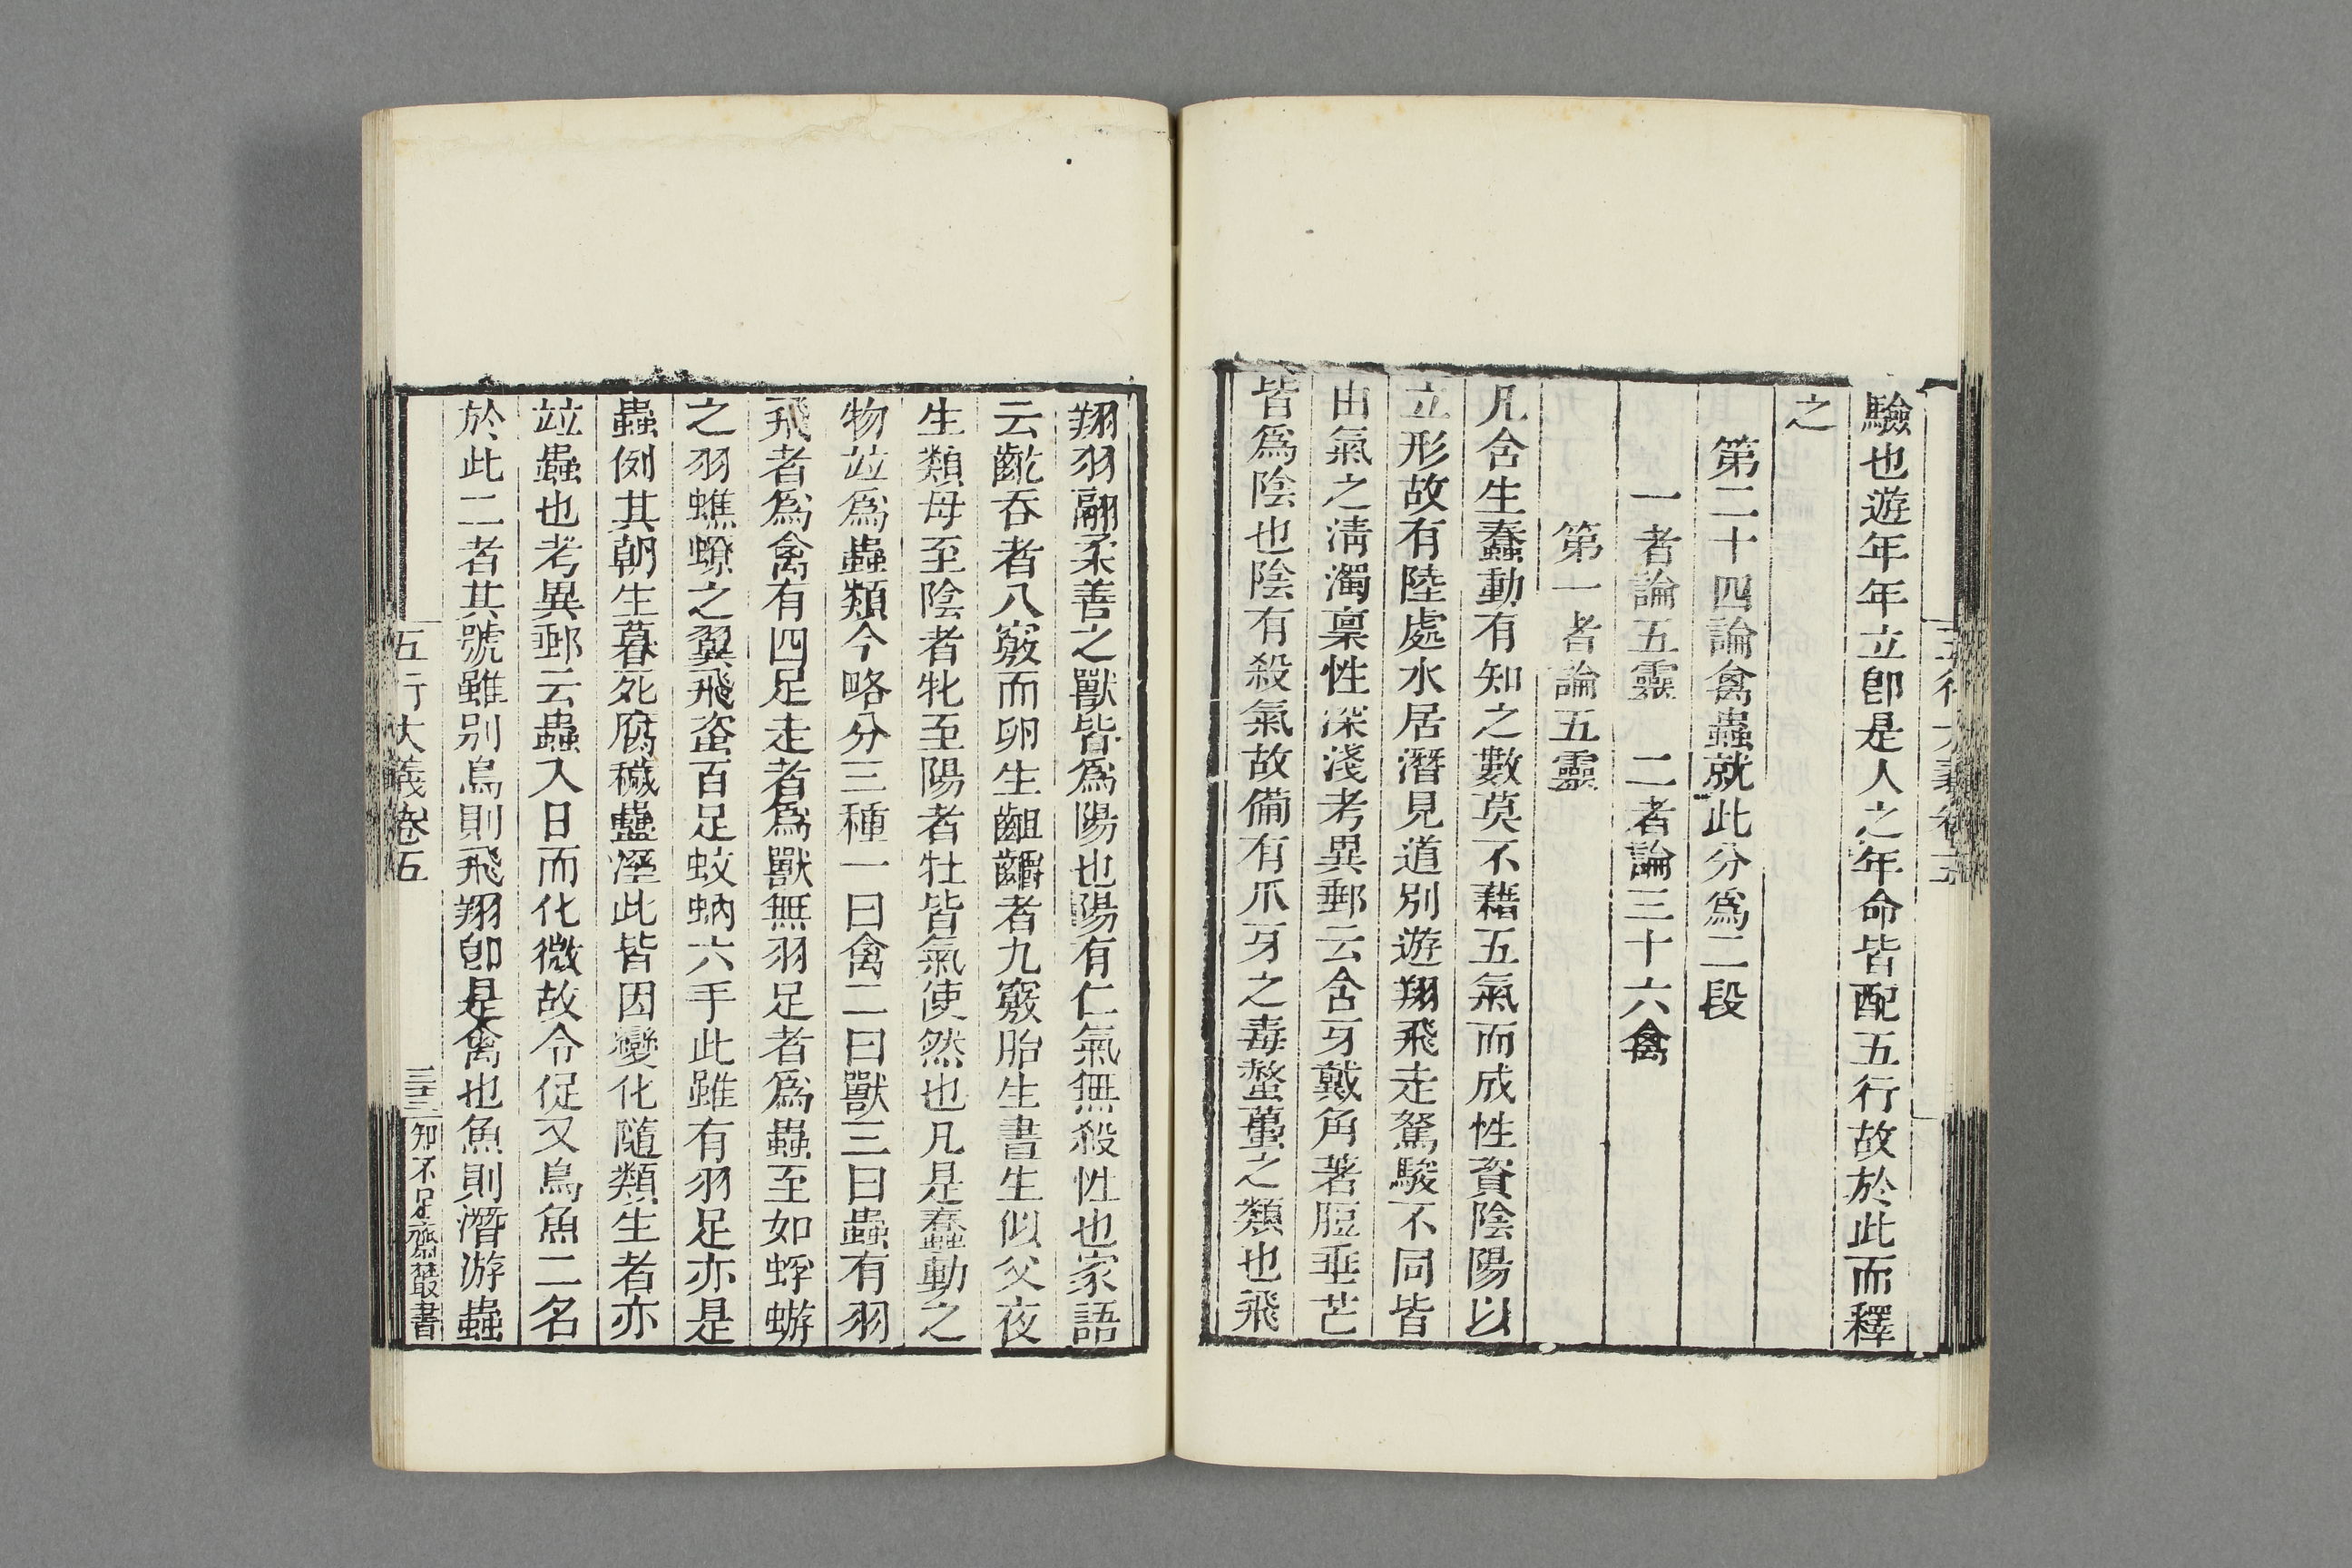 驗也遊年年立卽是人之年命皆配五行故於此而釋
之
第二十四論禽蟲就此分爲二段
一者論五靈 二者論三十六禽
第一者論五靈
凡含生蠢動有知之數莫不藉五氣而成性資陰陽以
立形故有陸處水居潛見道別遊翔飛走駑駿不同皆
由氣之淸濁稟性深淺考異郵云含牙戴角著脰垂芒
皆爲陰也陰有殺氣故備有爪牙之毒螫蠆之類也飛
翔羽翮柔善之獸皆爲陽也陽有仁氣無殺性也家語
云齕吞者八竅而卵生齟齵者九竅胎生書生似父夜
生類母至陰者牝至陽者牡皆氣使然也凡是蠢動之
物竝爲蟲類今略分三種一曰禽二曰獸三曰蟲有羽
飛者爲禽有四足走者爲獸無羽足者爲蟲至如蜉蝣
之羽蟭蟟之翼飛蛩百足蚊蚋六手此雖有羽足亦是
蟲例其朝生暮死腐穢蠱溼此皆因變化隨類生者亦
竝蟲也考異郵云蟲入日而化微故令促又鳥魚二名
於此二者其號雖別鳥則飛翔卽是禽也魚則潛游蟲
五行大義卷五
三十三
知不足齋叢書